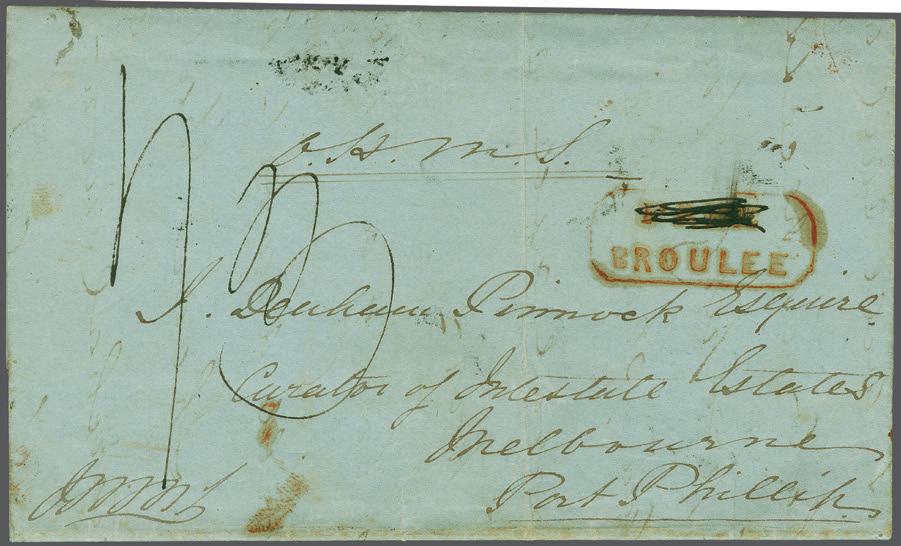 O.H.M.S.
BROULEE
J. Denham Pinnock Esquire
Curator of Intestate Estates
Melbourne
Port Phillip